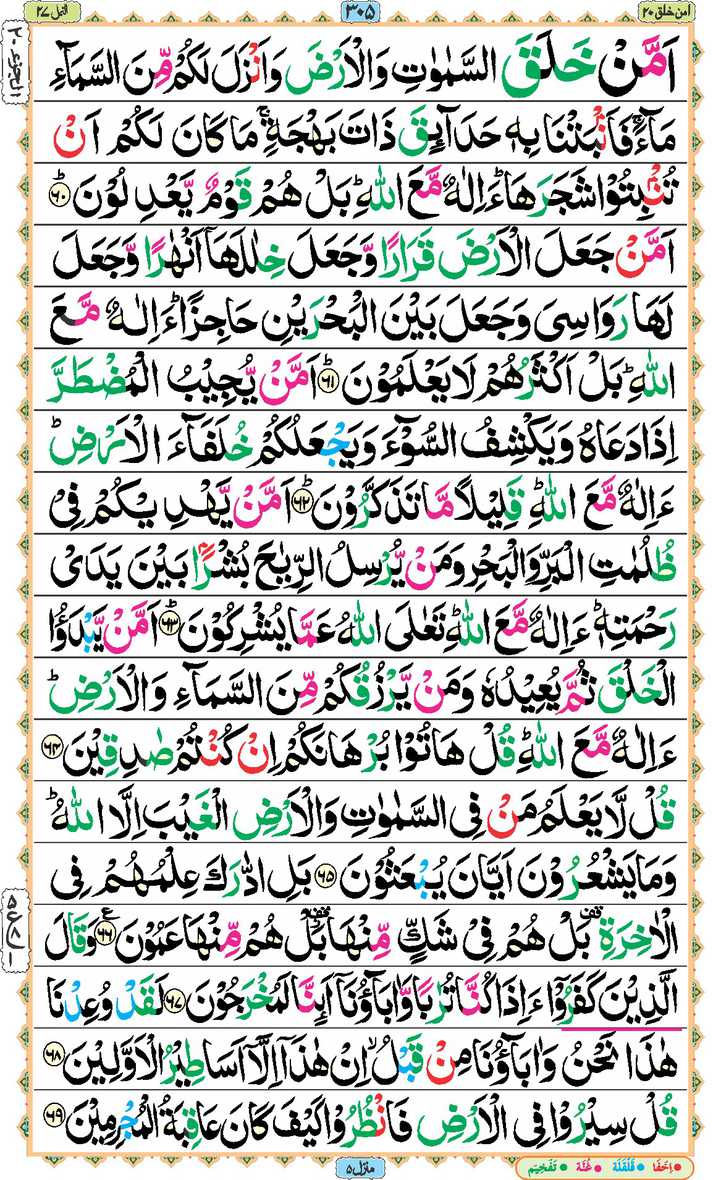 اٰمن خلق ٢٠
٣٠٥
النمل ٢٧
الجزء ٢٠
اَمَّنْ خَلَقَ السَّمٰوٰتِ وَالْاَرْضَ وَاَنْزَلَ لَكُمْ مِّنَ السَّمَآءِ
مَآءً ۚ فَاَنْۢبَتْنَا بِهٖ حَدَآئِقَ ذَاتَ بَهْجَةٍ ۚ مَا كَانَ لَكُمْ اَنْ
تُنْۢبِتُوْا شَجَرَهَا ؕ ءَاِلٰهٌ مَّعَ اللّٰهِ ؕ بَلْ هُمْ قَوْمٌ يَّعْدِلُوْنَ ؕ‏﴿۶۰﴾
اَمَّنْ جَعَلَ الْاَرْضَ قَرَارًا وَّجَعَلَ خِلٰلَهَاۤ اَنْهٰرًا وَّجَعَلَ
لَهَا رَوَاسِىَ وَجَعَلَ بَيْنَ الْبَحْرَيْنِ حَاجِزًا ؕ ءَاِلٰهٌ مَّعَ
اللّٰهِ ؕ بَلْ اَكْثَرُهُمْ لَا يَعْلَمُوْنَ ؕ‏﴿۶۱﴾ اَمَّنْ يُّجِيْبُ الْمُضْطَرَّ
اِذَا دَعَاهُ وَيَكْشِفُ السُّوْٓءَ وَيَجْعَلُكُمْ خُلَفَآءَ الْاَرْضِ ؕ
ءَاِلٰهٌ مَّعَ اللّٰهِ ؕ قَلِيْلًا مَّا تَذَكَّرُوْنَ ؕ‏﴿۶۲﴾ اَمَّنْ يَّهْدِيْكُمْ فِىْ
ظُلُمٰتِ الْبَرِّ وَالْبَحْرِ وَمَنْ يُّرْسِلُ الرِّيٰحَ بُشْرًۢا بَيْنَ يَدَىْ
رَحْمَتِهٖ ؕ ءَاِلٰهٌ مَّعَ اللّٰهِ ؕ تَعٰلَى اللّٰهُ عَمَّا يُشْرِكُوْنَ ؕ‏﴿۶۳﴾ اَمَّنْ يَّبْدَؤُا
الْخَلْقَ ثُمَّ يُعِيْدُهٗ وَمَنْ يَّرْزُقُكُمْ مِّنَ السَّمَآءِ وَالْاَرْضِ ؕ
ءَاِلٰهٌ مَّعَ اللّٰهِ ؕ قُلْ هَاتُوْا بُرْهَانَكُمْ اِنْ كُنْتُمْ صٰدِقِيْنَ‏﴿۶۴﴾
قُلْ لَّا يَعْلَمُ مَنْ فِى السَّمٰوٰتِ وَالْاَرْضِ الْغَيْبَ اِلَّا اللّٰهُ ؕ
وَمَا يَشْعُرُوْنَ اَيَّانَ يُبْعَثُوْنَ‏﴿۶۵﴾ بَلِ ادّٰرَكَ عِلْمُهُمْ فِى
الْاٰخِرَةِ بَلْ هُمْ فِىْ شَكٍّ مِّنْهَا بَلْ هُمْ مِّنْهَا عَمُوْنَ‏﴿۶۶﴾ وَقَالَ
الَّذِيْنَ كَفَرُوْۤا ءَاِذَا كُنَّا تُرٰبًا وَّاٰبَآؤُنَاۤ اَئِنَّا لَمُخْرَجُوْنَ‏﴿۶۷﴾ لَقَدْ وُعِدْنَا
هٰذَا نَحْنُ وَاٰبَآؤُنَا مِنْ قَبْلُ ۙ اِنْ هٰذَاۤ اِلَّاۤ اَسَاطِيْرُ الْاَوَّلِيْنَ‏﴿۶۸﴾
قُلْ سِيْرُوْا فِى الْاَرْضِ فَانْظُرُوْا كَيْفَ كَانَ عَاقِبَةُ الْمُجْرِمِيْنَ‏﴿۶۹﴾
منزل ٥
اِخفَا قَلْقَلَهْ غُنَّه تَفْخِيْم